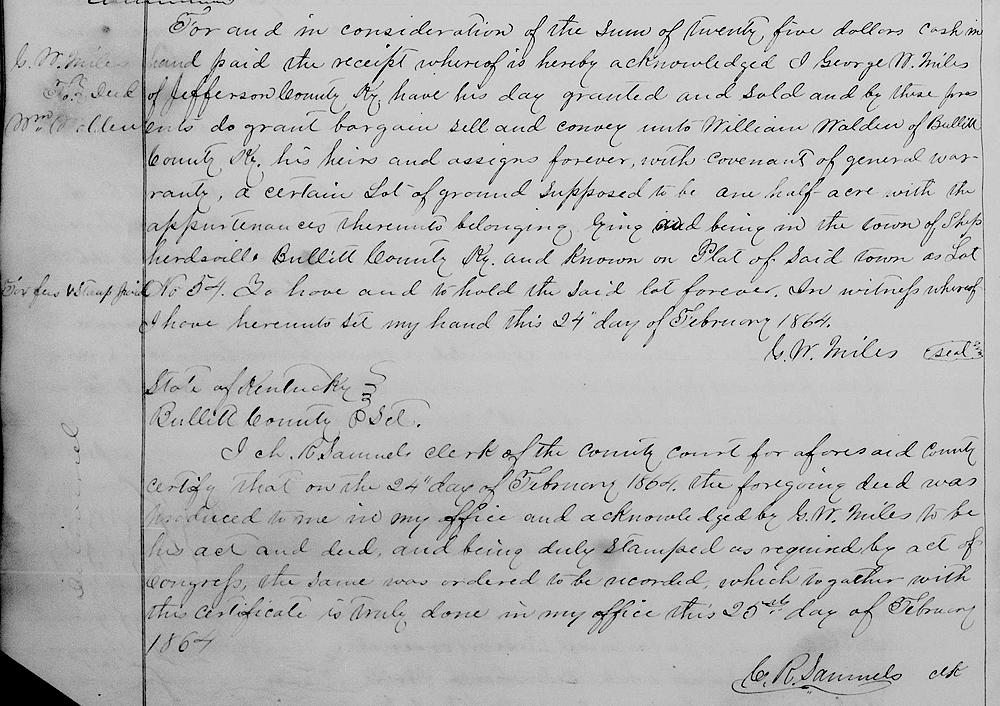 For and in consideration of the sum of twenty five dollars cash in
G. W. Miles hand paid the receipt whereof is hereby acknowledged I George W. Miles
To Deed of Jefferson County Ky, have his day granted and sold and by these pres
Wm Wallen ents do grant bargain sell and convey unto William Walden of Bullitt
County Ky. his heirs and assigns forever, with covenant of general war-
ranty, a certain Lot of ground supposed to be one half acre with the
appurtenances thereunto belonging lying and being in the town of Shep
herdsville Bullitt County Ky. and known on Plat of said town as Lot
fees & Stamp paid No 54. To have and to hold the said lot forever. In witness whereof
I have hereunto set my hand this 24" day of February 1864.
G. W. Miles seal
State of Kentucky
Bullitt County Sct.
I ch. R Samuels clerk of the county court for aforesaid County
certify that on the 24" day of February 1864. the foregoing deed was
produced to me in my office and acknowledged by G. W. Miles to be
his act and deed, and being duly stamped as required by act of
Congress, the same was ordered to be recorded, which together with
this certificate is truly done in my office this 25th day of February
1864
C. R. Samuels clk